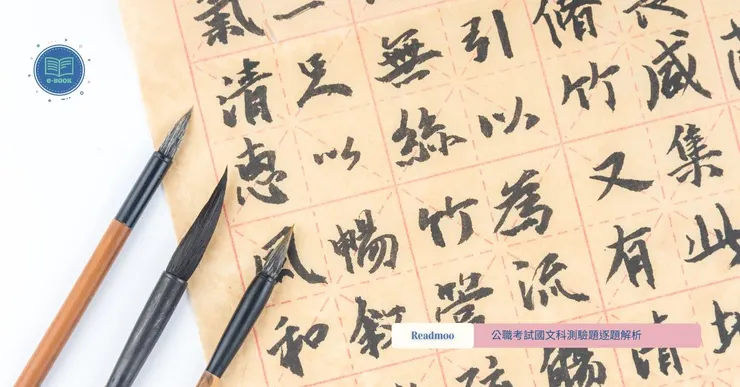 e-BOOK
咸集此地
脩竹又有清
引以為流觴
無絲竹管
足以暢敘
氣清惠風和
Readmoo
公職考試國文科測驗題逐題解析